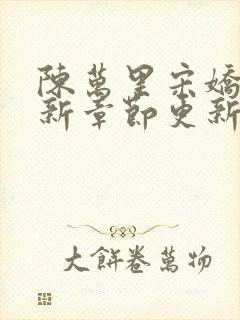 陳萬里宋嬌
新章節更新
大餅卷萬物